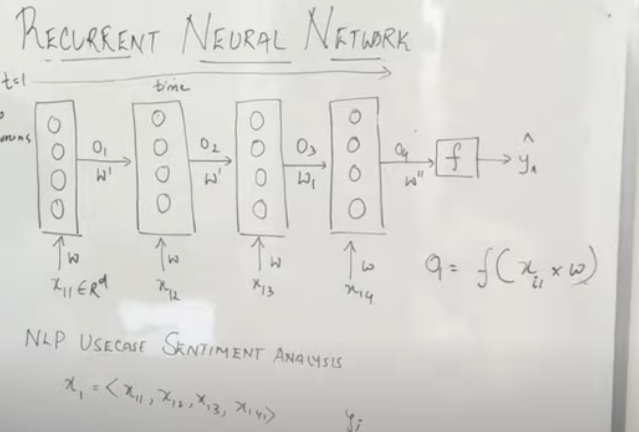 RECURRENT NEURAL NETWORK
t=1
time
O₁ O₂ O₃ O₄ f ŷ₁
W' W' W₁ W''
W W W W
x₁₁ ∈ Rᵈ x₁₂ x₁₃ x₁₄
O₁ = f(x₁₁ × W)
NLP USECASE SENTIMENT ANALYSIS
x₁ = <x₁₁, x₁₂, x₁₃, x₁₄>
yᵢ